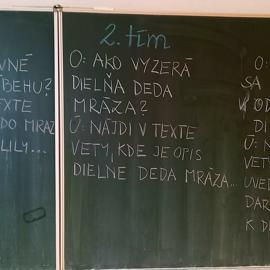 VNÉ
BEHU?
EXTE
DO MRAZ
LILY...
2. tím
O: AKO VYZERÁ
DIELŇA DEDA
MRÁZA?
Ú: NÁJDI V TEXTE
VETY, KDE JE OPIS
DIELNE DEDA MRÁZA...
O:
SA
V OD
DI
Ú: N
VET
UVED
DAR
K D